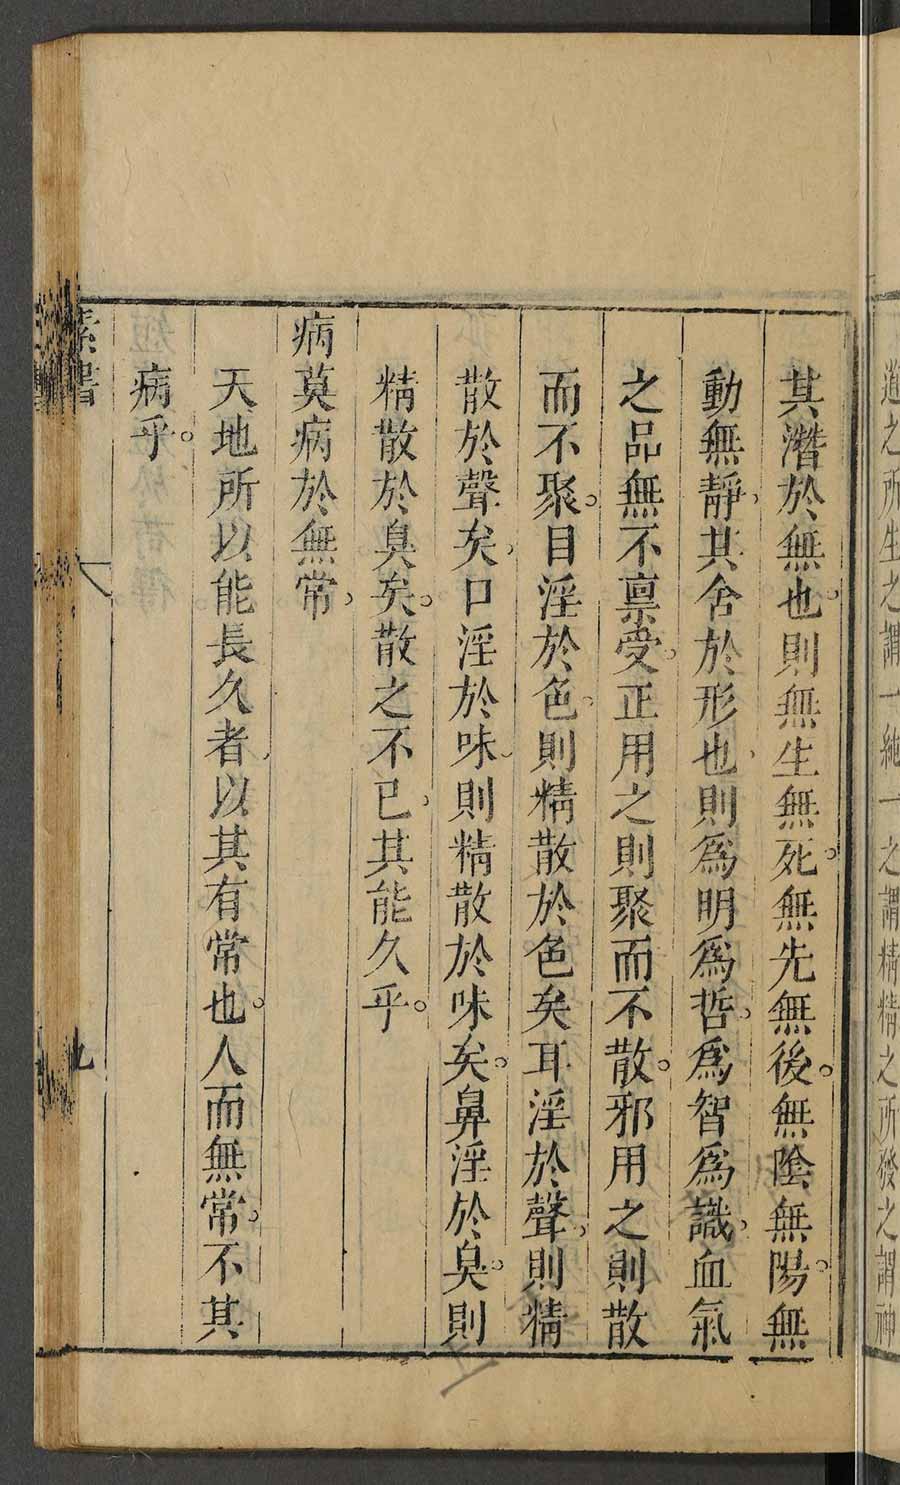 道之所生之謂一純一之謂精精之所發之謂神
其潛於無也則無生無死無先無後無陰無陽無
動無靜其舍於形也則爲明爲哲爲智爲識血氣
之品無不禀受正用之則聚而不散邪用之則散
而不聚目淫於色則精散於色矣耳淫於聲則精
散於聲矣口淫於味則精散於味矣鼻淫於臭則
精散於臭矣散之不已其能久乎
病莫病於無常
天地所以能長久者以其有常也人而無常不其
病乎
素書
九